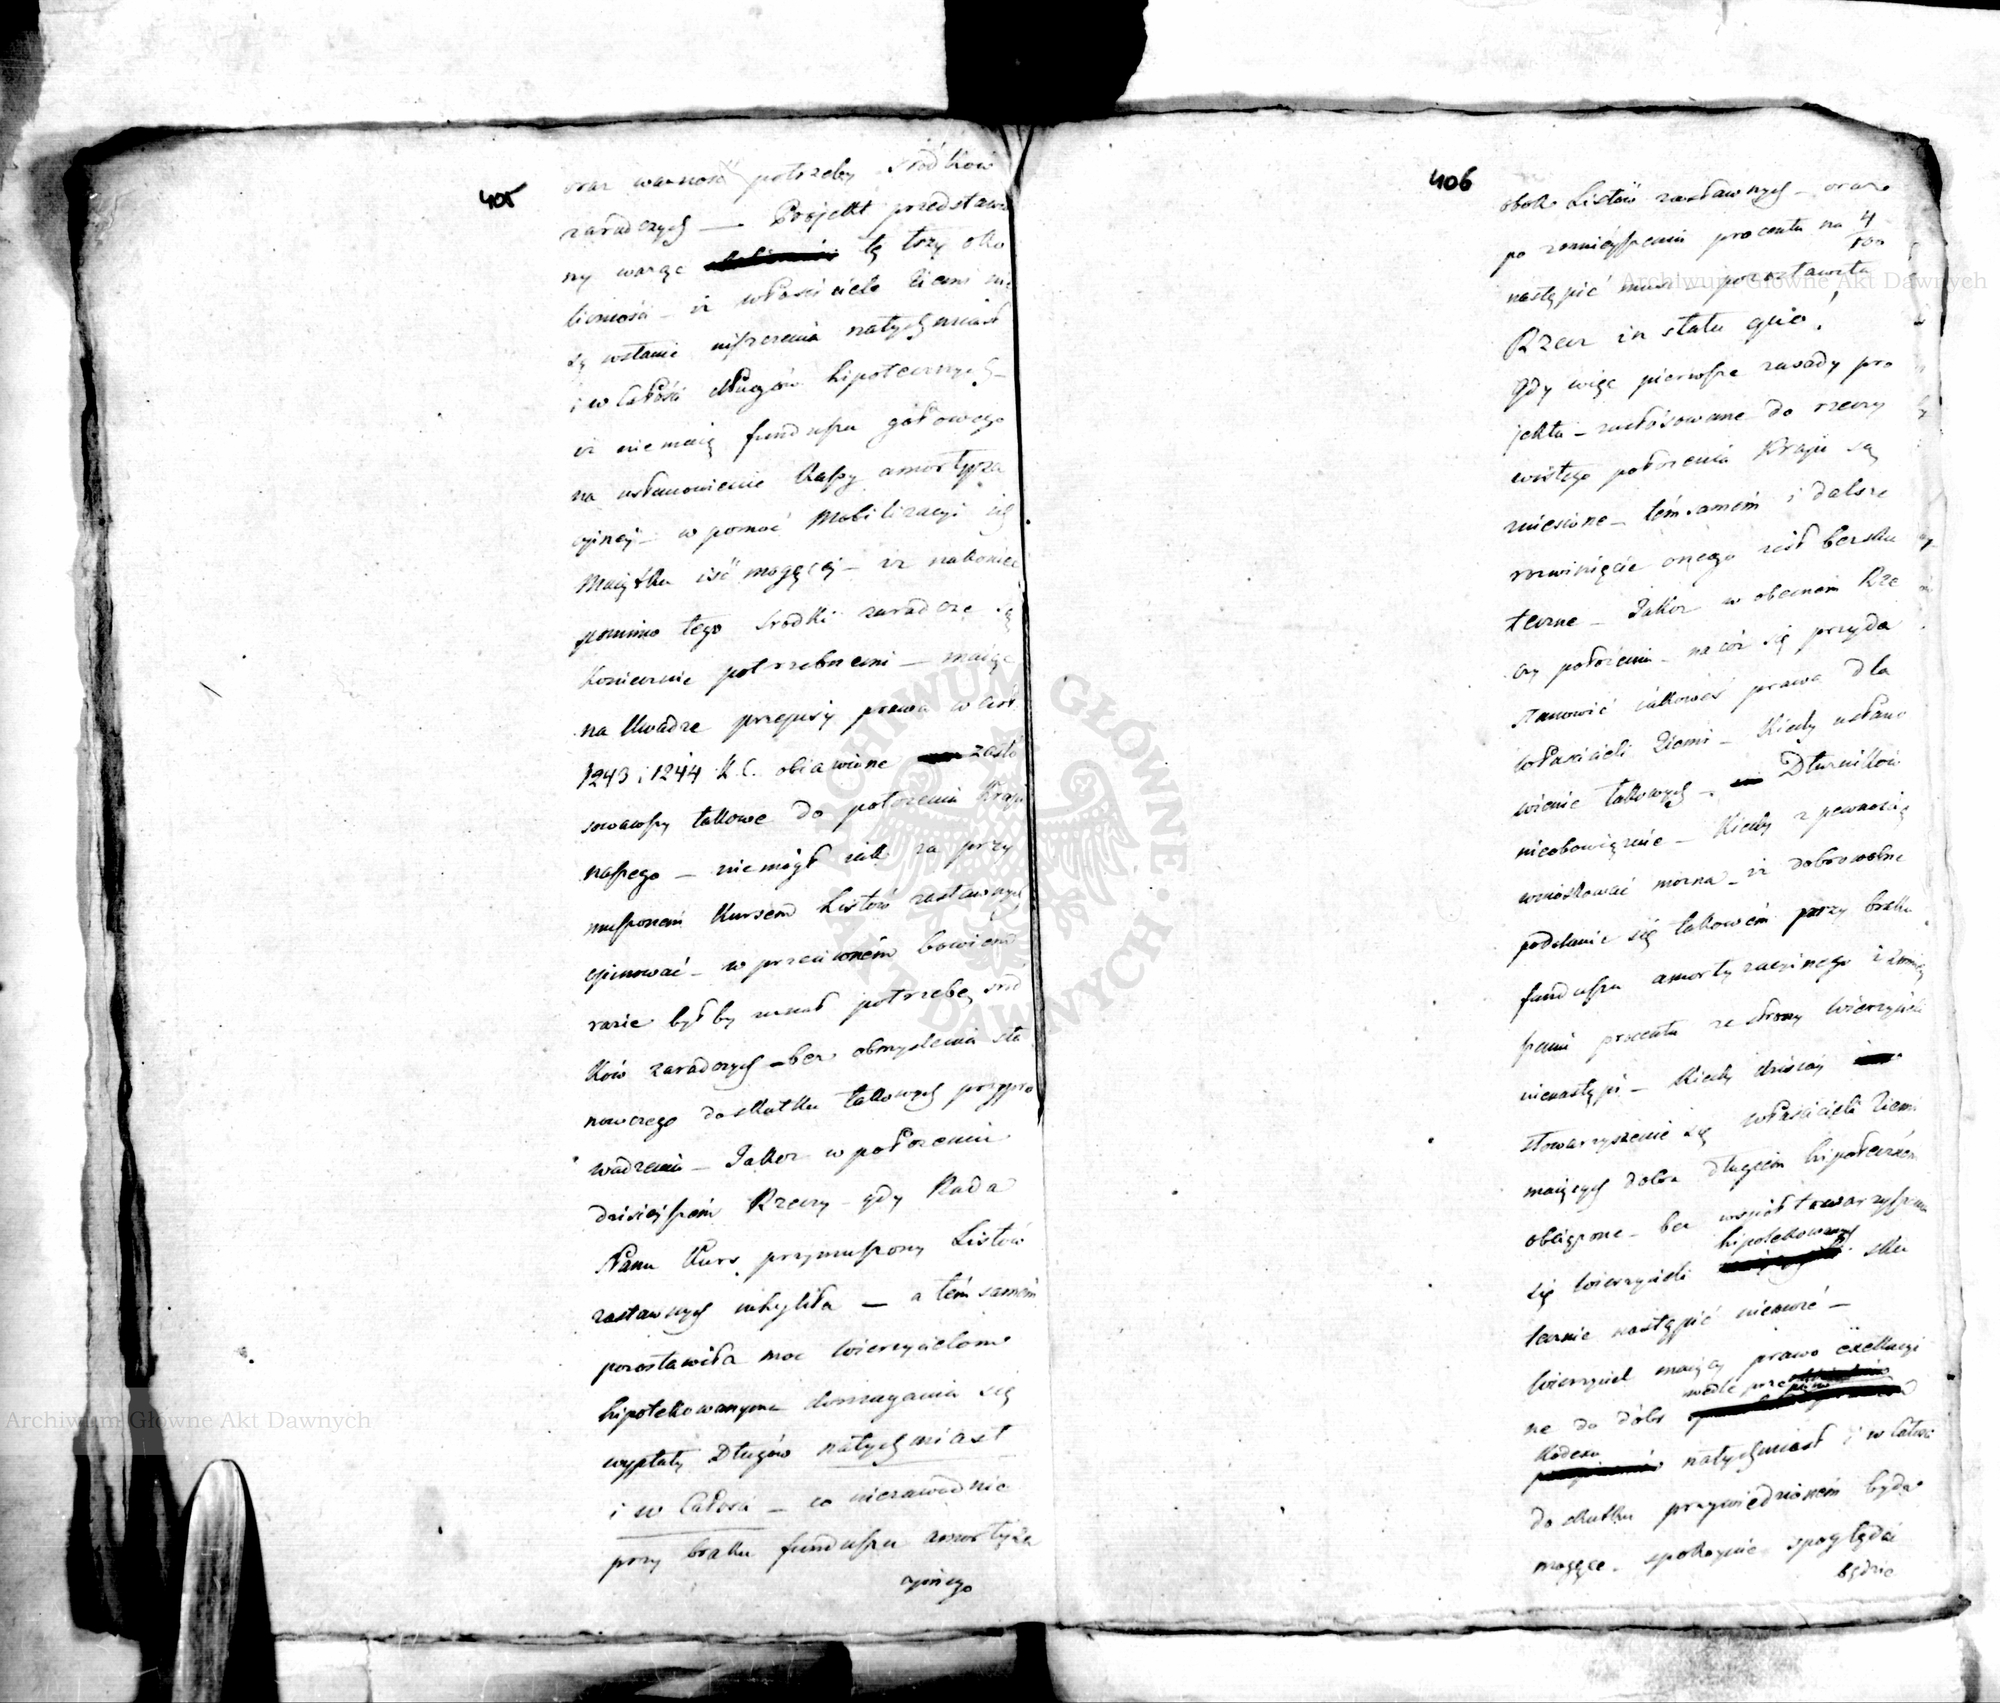 405
oraz ważność potrzeby śródków
zaradczych — Projekt przedstawio
ny ważąc tę trzy oko
liczność – iż właściciele Ziemi nie
są wstanie uiszczenia natychmiast
i w Całości długów hipotecznych –
iż niemaią funduszu gotowego
na ustanowienie Kassy amortyza
cyjnej – w pomoc Mobilizacyi ich
Maiątku iść mogącej – iż nakoniec
pomimo tego srodki zaradcze są
Koniecznie potrzebnemi – maiąc
na Uwadze przepisy prawa w art.
1243 i 1244 K.C. obiawione zasto
sowawszy takowe do położenia Kraju
naszego – niemógł iak za przy
muszonem Kursem Listów zastawnych
opinować – w przeciwném bowiem
razie byłby uznał potrzebę środ
ków zaradczych – bez obmyślenia sta
nowczego do skutku takowych przypro
wadzenia – Jakoż w położeniu
dzisieyszem Rzeczy – gdy Rada
Stanu Kurs przymuszony Listów
zastawnych uchyliła — a tém samém
pozostawiła moc Wierzycielom
hipotekowanym domagania się
wypłaty Długów natychmiast
i w Całości – co niezawodnie
przy braku funduszu amortyza
cyinego
406
obok Listów zastawnych – oraz
po zmnieyszeniu procentu na 4/100
nastąpić musi – pozostawiła
Rzecz in statu quo,
Gdy więc pierwsze zasady pro
jektu – zastósowane do rzeczy
wistego położenia Kraju są
zniesione – tém samém i dalsze
rozwinięcie onego iest bezsku
teczne – Jakoż w obecnem Rze
czy położeniu – na cóż się przyda
stanowić iakoweś prawa dla
właścicieli Ziemi – Kiedy ustano
wienie takowych – Dłużników
nieobowiąznie – Kiedy z pewnością
wnioskować można – iż dobrowolne
poddanie się takowém przy braku
funduszu amortyzacyinego i zmniey
szeniu procentu ze strony Wierzycieli
nienastąpi – Kiedy dzisiay
stowarzyszenie się właścicieli Ziemi
maiących dobra długiem hipotecznem
obciążone – bez współtowarzyszenia
się Wierzycieli hipotekowanych sku
tecznie nastąpić niemoże –
Wierzyciel maiący prawo exekucyi
ne do dóbr wedle przepisów
Kodexu natychmiast i w Całości
do skutku przywiedzioném bydź
mogące – spokoynie spoglądać
będzie
Archiwum Główne Akt Dawnych
Archiwum Główne Akt Dawnych
ARCHIWUM GŁÓWNE • AKT DAWNYCH •